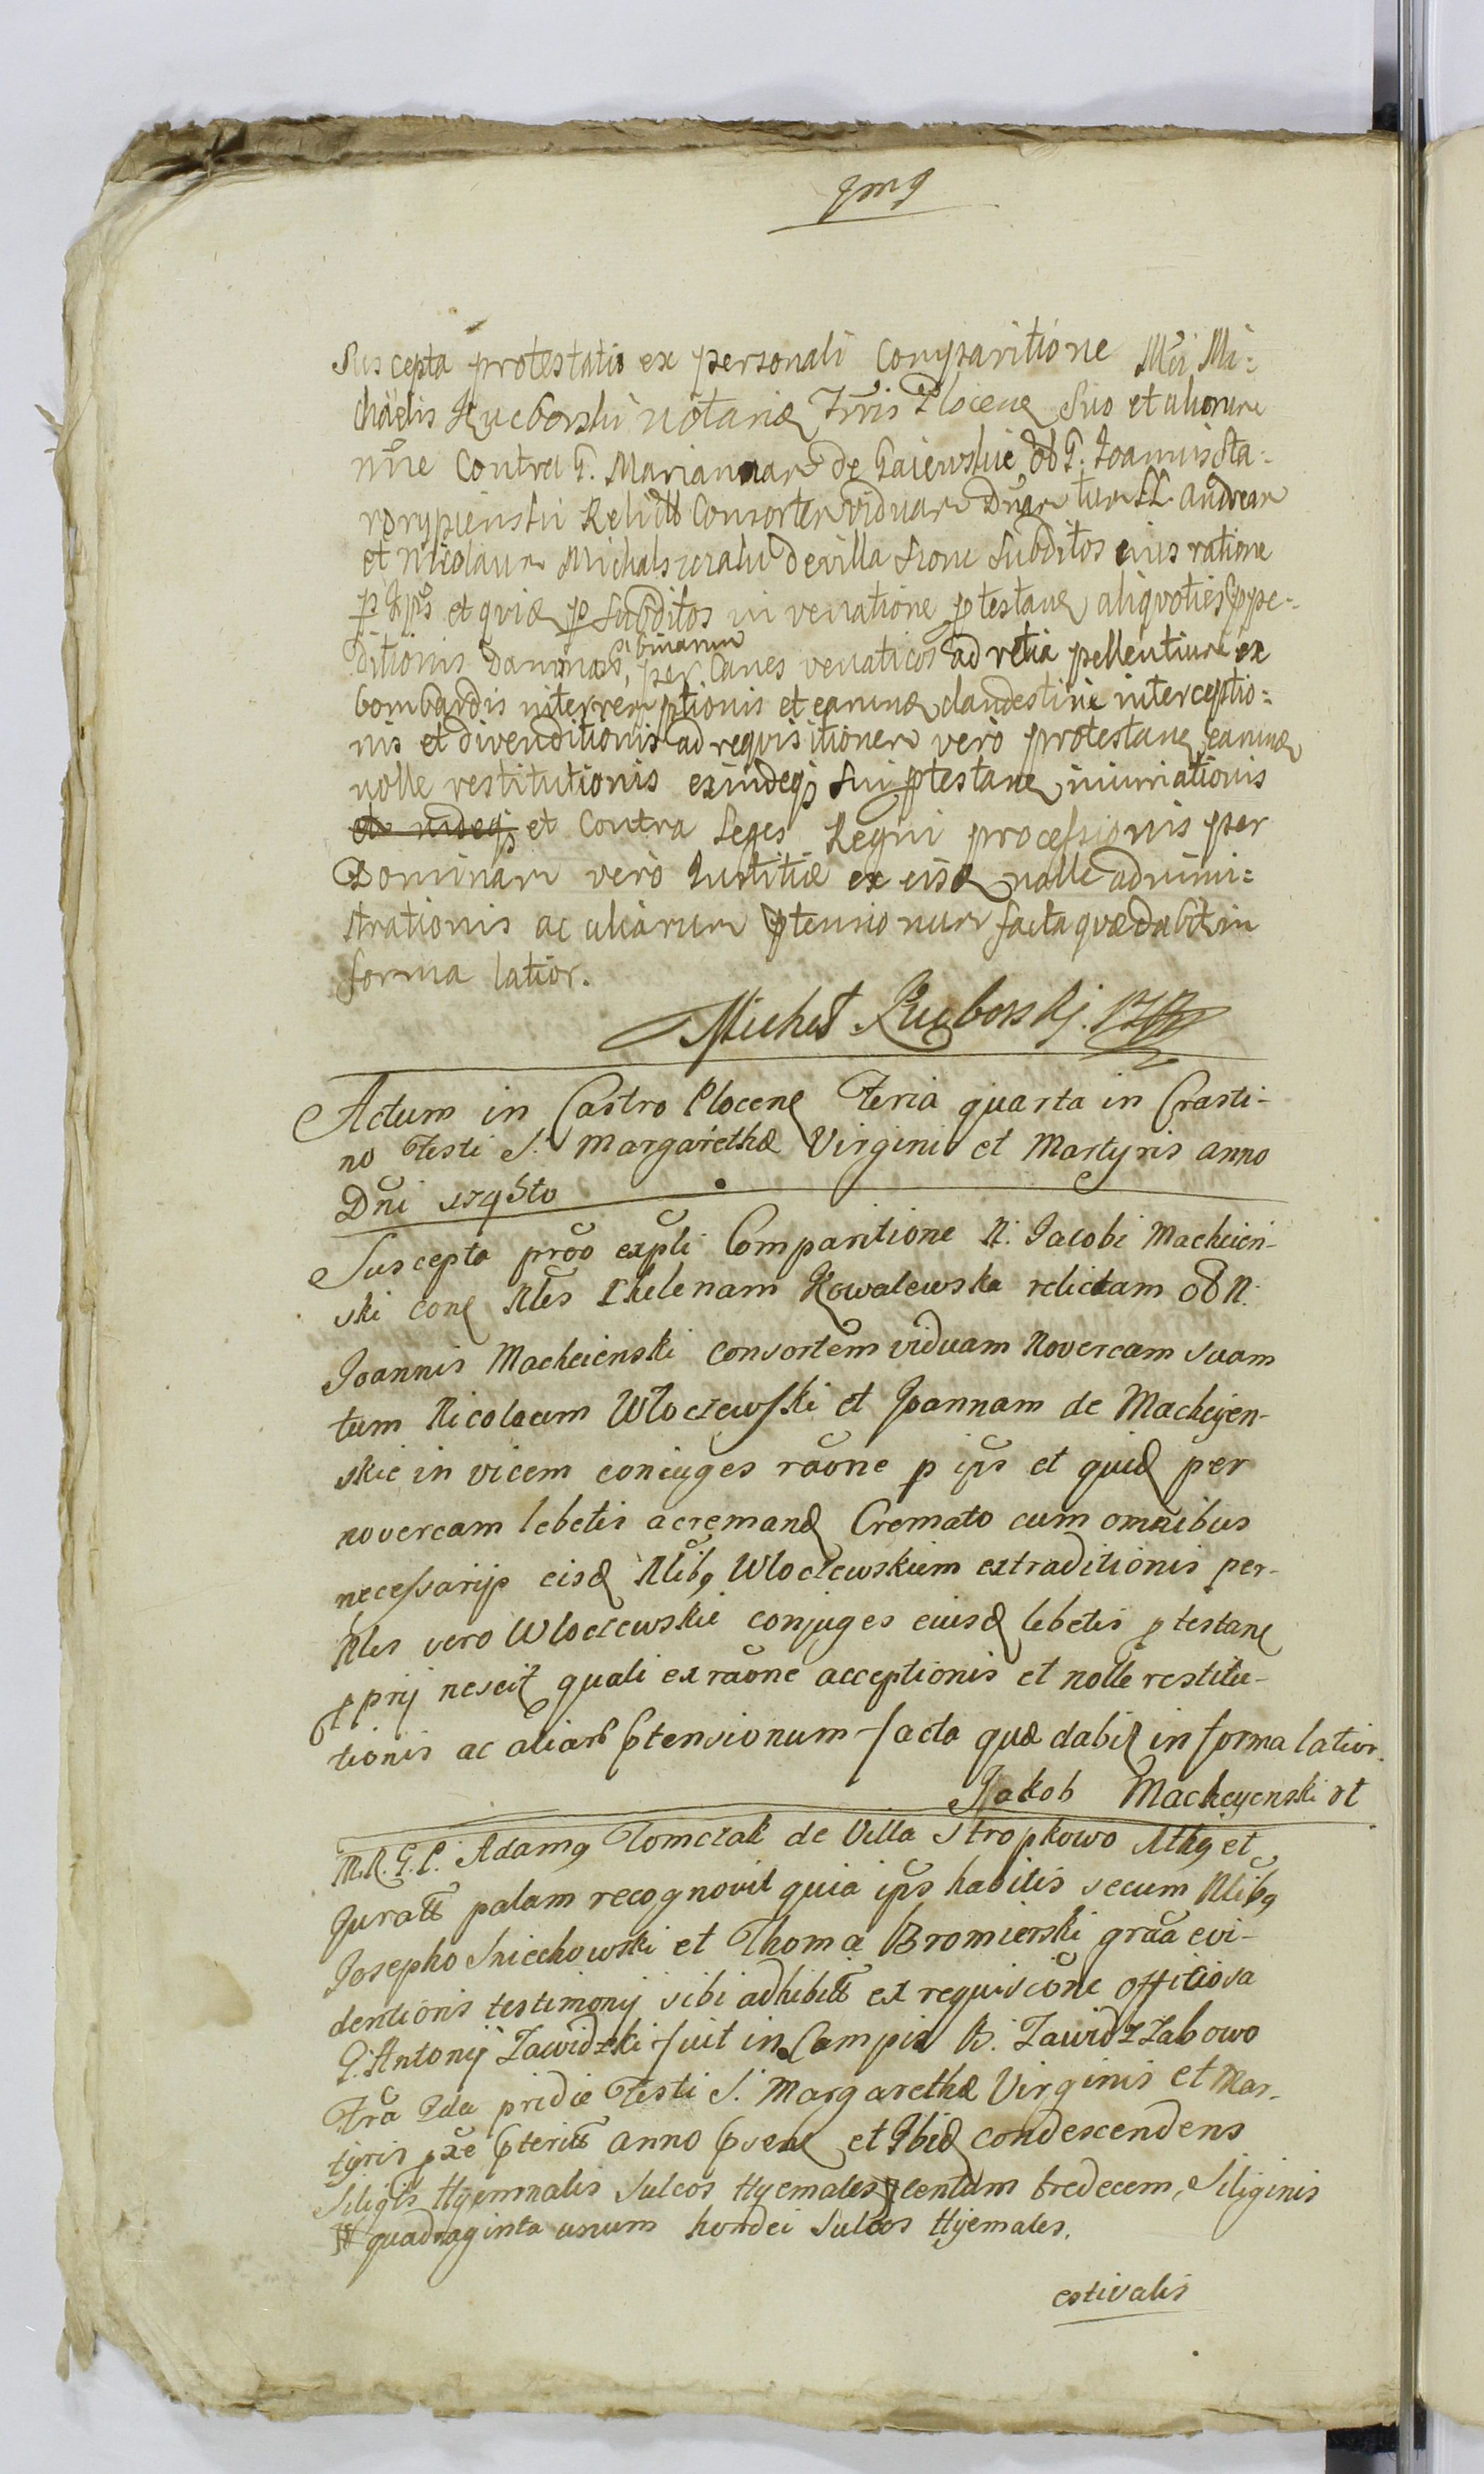 Suscepta protestatio ex personali Comparitione Mci Mi=
chaelis notariæ Trris Plocen Suo et aliorum
nne Contra G. Mariannam de Gaiewskie ob G. Joannis Sta=
rorypienski Relictæ Consortem viduam Dnam tum LL. Andream
et Nicolaum de villa Subditos eius ratione
p ips et quia p subditos in venatione ptestane aliquoties ppe=
ditionis Damnas, per Canes venaticos ad retia pellentium ex
bombardis interremptionis et earumd clandestinie interceptio=
nis et divenditionis ad requisitionem vero protestane earumd
nolle restitutionis exindeq sui ptestane iniuriationis
et indeq et Contra Leges Regni processionis per
Dominam vero Iustitiæ ex eisd nolle admini=
strationis ac aliarum ptensionum facta quæ dabit in
forma latior.
Michał
Actum in Castro Plocen Feria quarta in Crasti-
no Festi S. Margarethæ Virginis et Martyris anno
Dni 1745to
Suscepta prôo expli Comparitione N. Jacobi Macheien-
ski con Nles Helenam Kowalewska relictam ob N.
Joannis Macheienski consortem viduam Novercam suam
tum Nicolaum Włoczewski et Joannam de Macheyen-
skie in vicem coniuges raône p ips et quia per
novercam lebetis a cremand Cremato cum omnibus
necessarijs eisd Nlibq Wloczewskiem extraditionis per-
Nles vero Wloczewskie conjuges eiusd lebetis ptestane
pprij nescit quali ex raône acceptionis et nolle restitu-
tionis ac aliarb ptensionum facta quæ dabit in forma latior.
Jakob Macheyenski
M.R.G.P. Adamq Tomczak de Villa Stropkowo et
Jurats palam recognovit quia ips habitis secum Nlibq
Josepho Sniechowski et Thoma Bromierski graa evi-
dentioris testimonij sibi adhibits ex requiscione officiosa
G. Antonij Zawidzki fuit in Campis B. Zawidz Zabowo
Fra 2da pridie Festi S. Margarethæ Virginis et Mar-
tyris pxe pterits anno psene et Ibid condescendens
Siligis Hyemnalis Sulcos Hyemales centum tredecem, Siliginis
quadraginta unum hordei Sulcos Hyemales.
estivalis